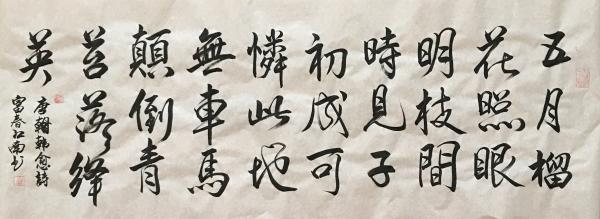 五月榴
花照眼
明枝間
時見子
初成可
憐此地
無車馬
顛倒青
苔落絳
英
唐朝韩愈詩
富春江南书